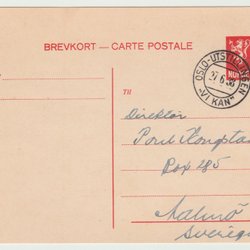 BREVKORT — CARTE POSTALE
OSLO-UTSTILLINGEN
27 6 38
"VI KAN"
Til
Direktör
Poul
Box 285
Malmö
Sverige